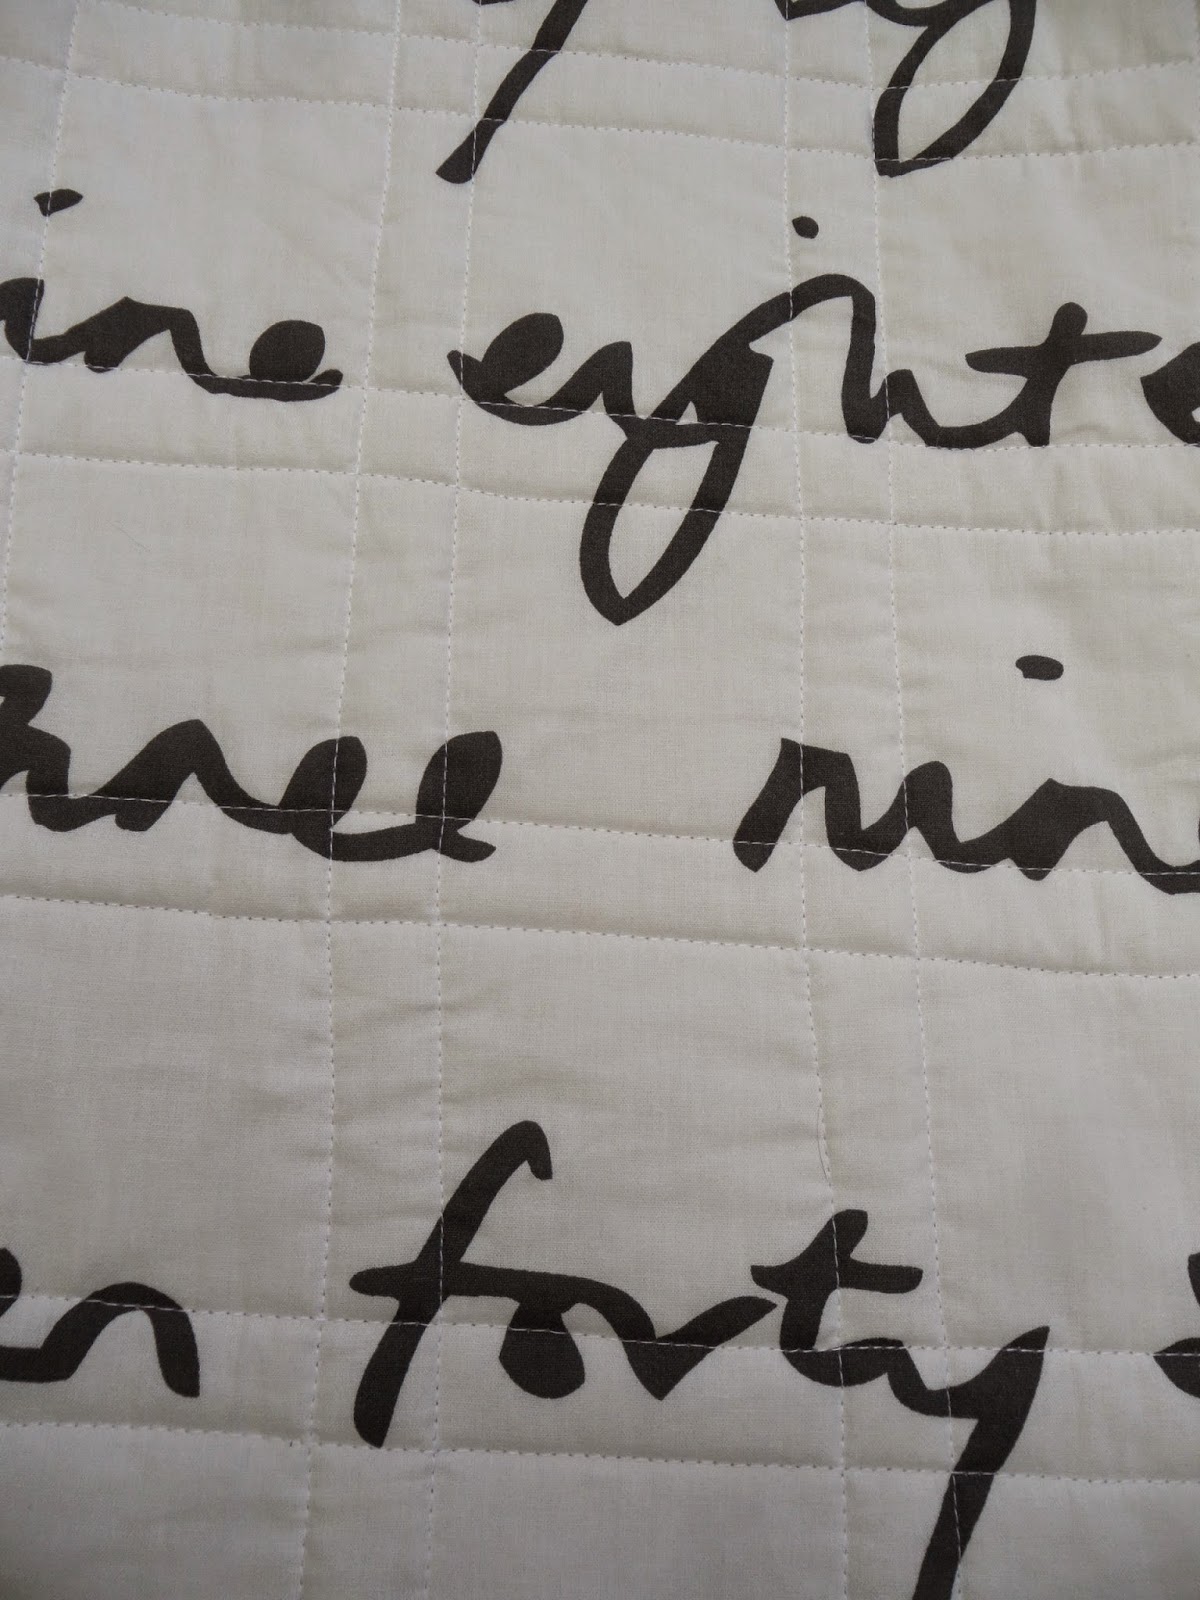 ine eighte
hree nin
en forty